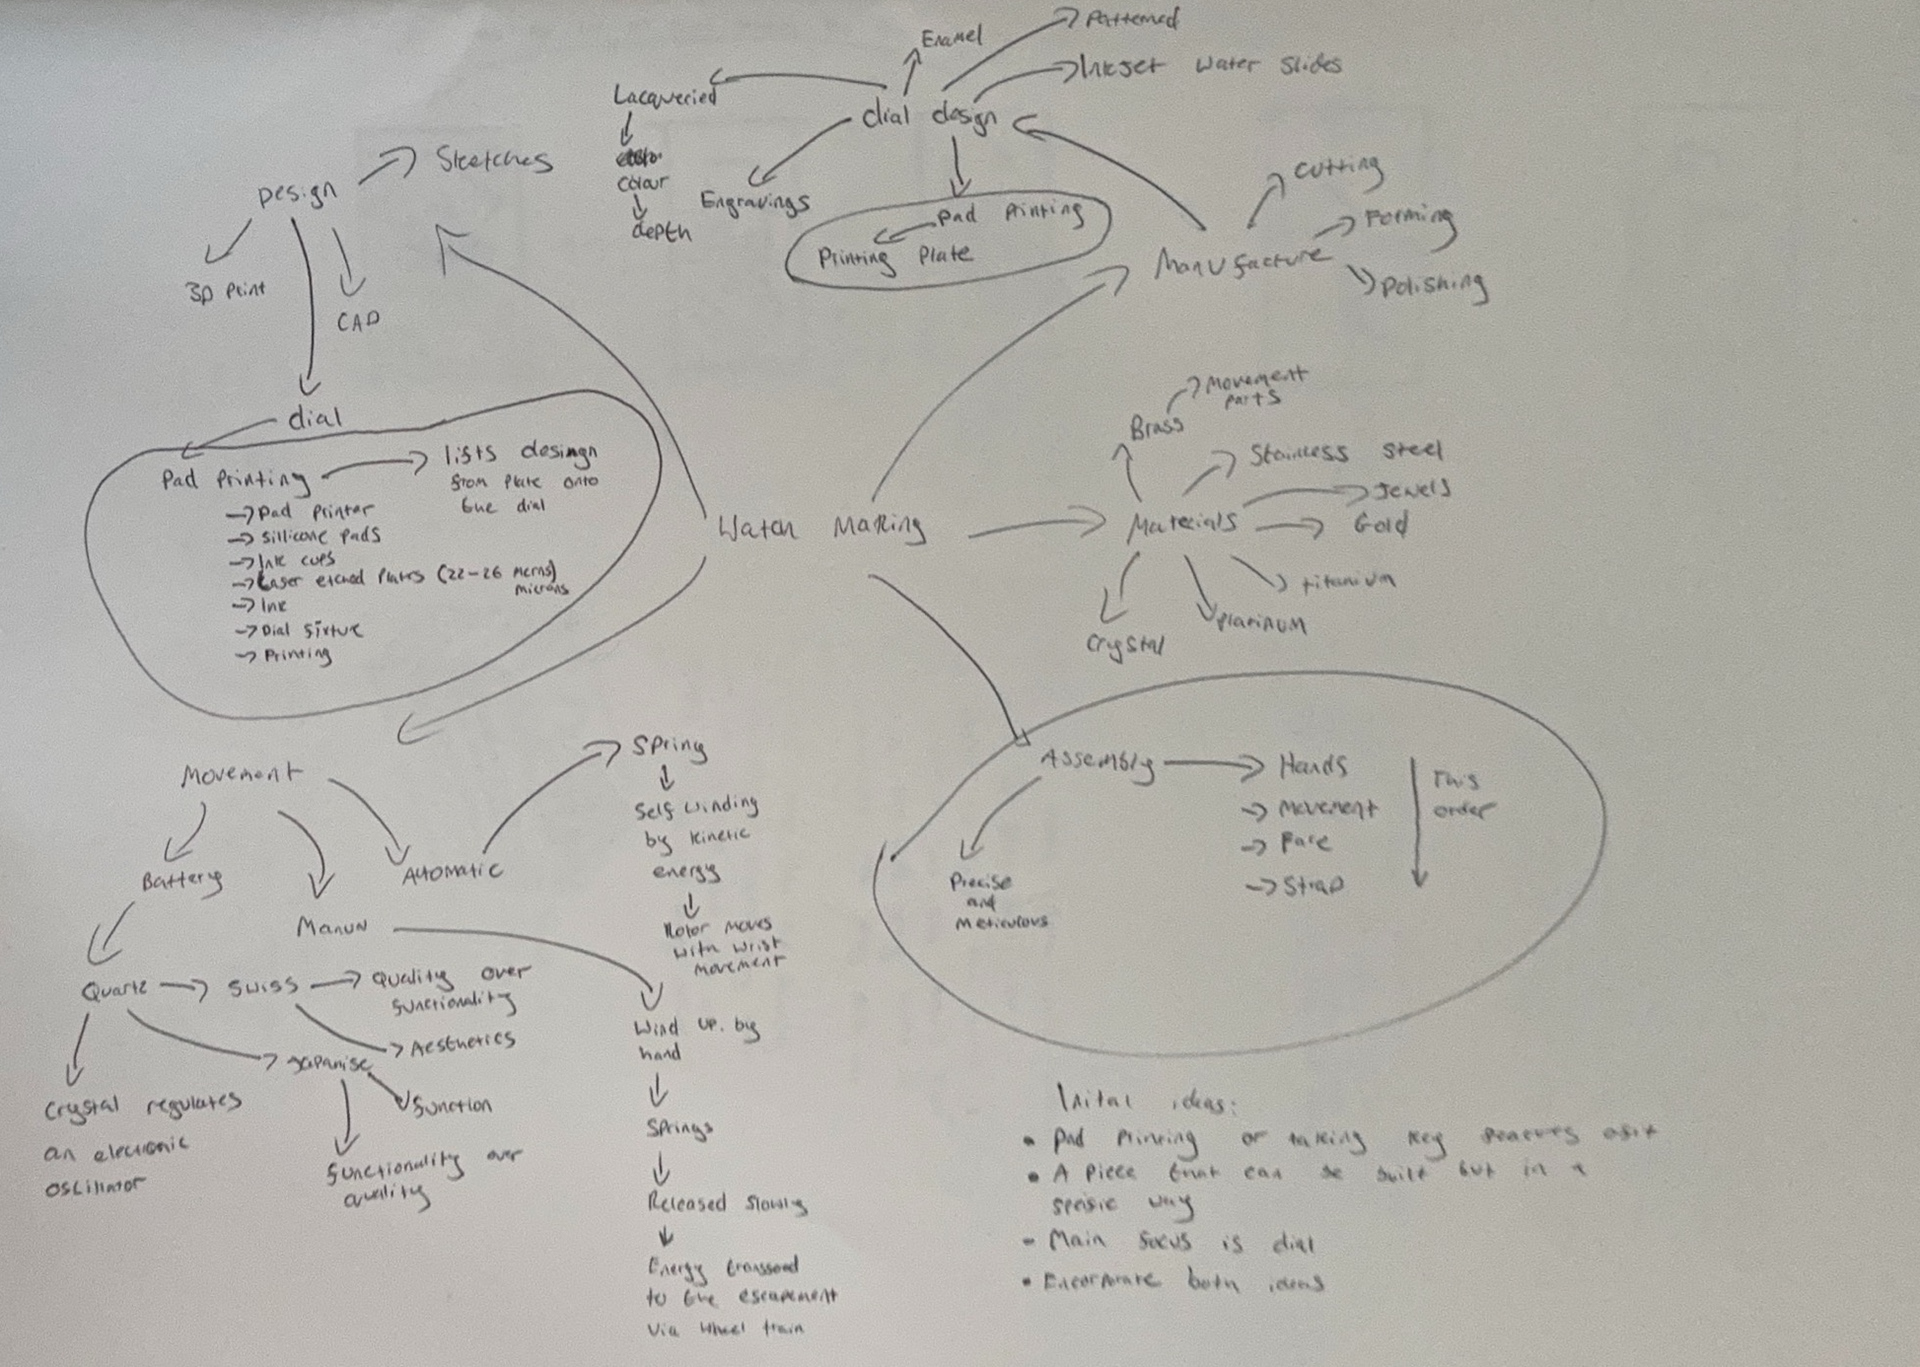 Patterned
Enamel
Inkjet water slides
Lacqueried
dial design
colour
depth
Engravings
Pad Printing
Printing Plate
Design
Sketches
3D Print
CAD
Manufacture
Cutting
Forming
Polishing
dial
Pad Printing
lifts desingn
from plate onto
the dial
→ Pad Printer
→ Sillicone Pads
→ Ink cups
→ Laser etched Plates (22-26 micrns)
microns
→ Ink
→ Dial fixture
→ Printing
Watch Making
Materials
Brass
Movement
parts
Stainless steel
Jewels
Gold
titanium
Platinum
Crystal
Movement
Battery
Manun
Automatic
Spring
Self winding
by kinetic
energy
Rotor moves
with wrist
movement
Quartz
Swiss
Quality over
functionality
Aesthetics
Japanise
function
functionality over
quality
Crystal regulates
an electronic
oscillator
Wind up by
hand
Springs
Released slowly
Energy
to the escapement
via wheel train
Assembly
Precise
and
Meticulous
Hands
→ Movement
→ Face
→ Strap
This
order
Inital ideas:
• Pad Printing or taking key of it
• A piece that can be built but in a
way
- Main focus is dial
• Encorporate both ideas